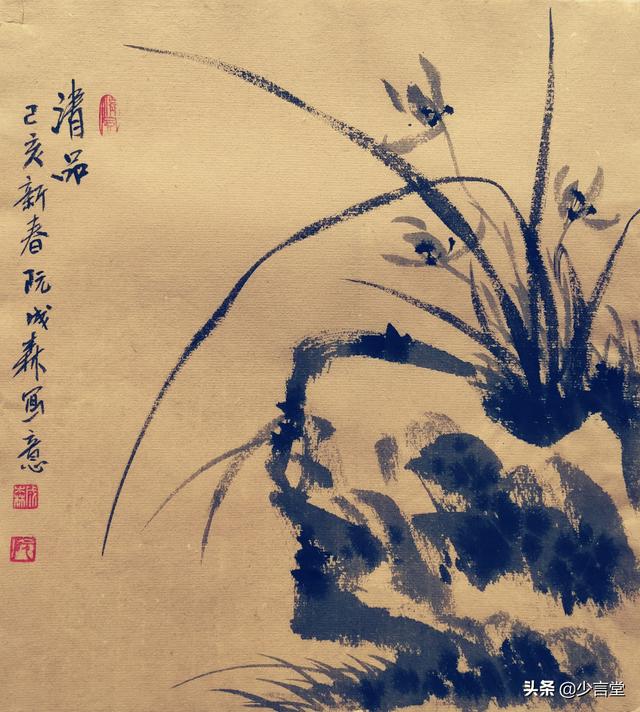 清品
己亥新春阮成森写意
头条 @少言堂